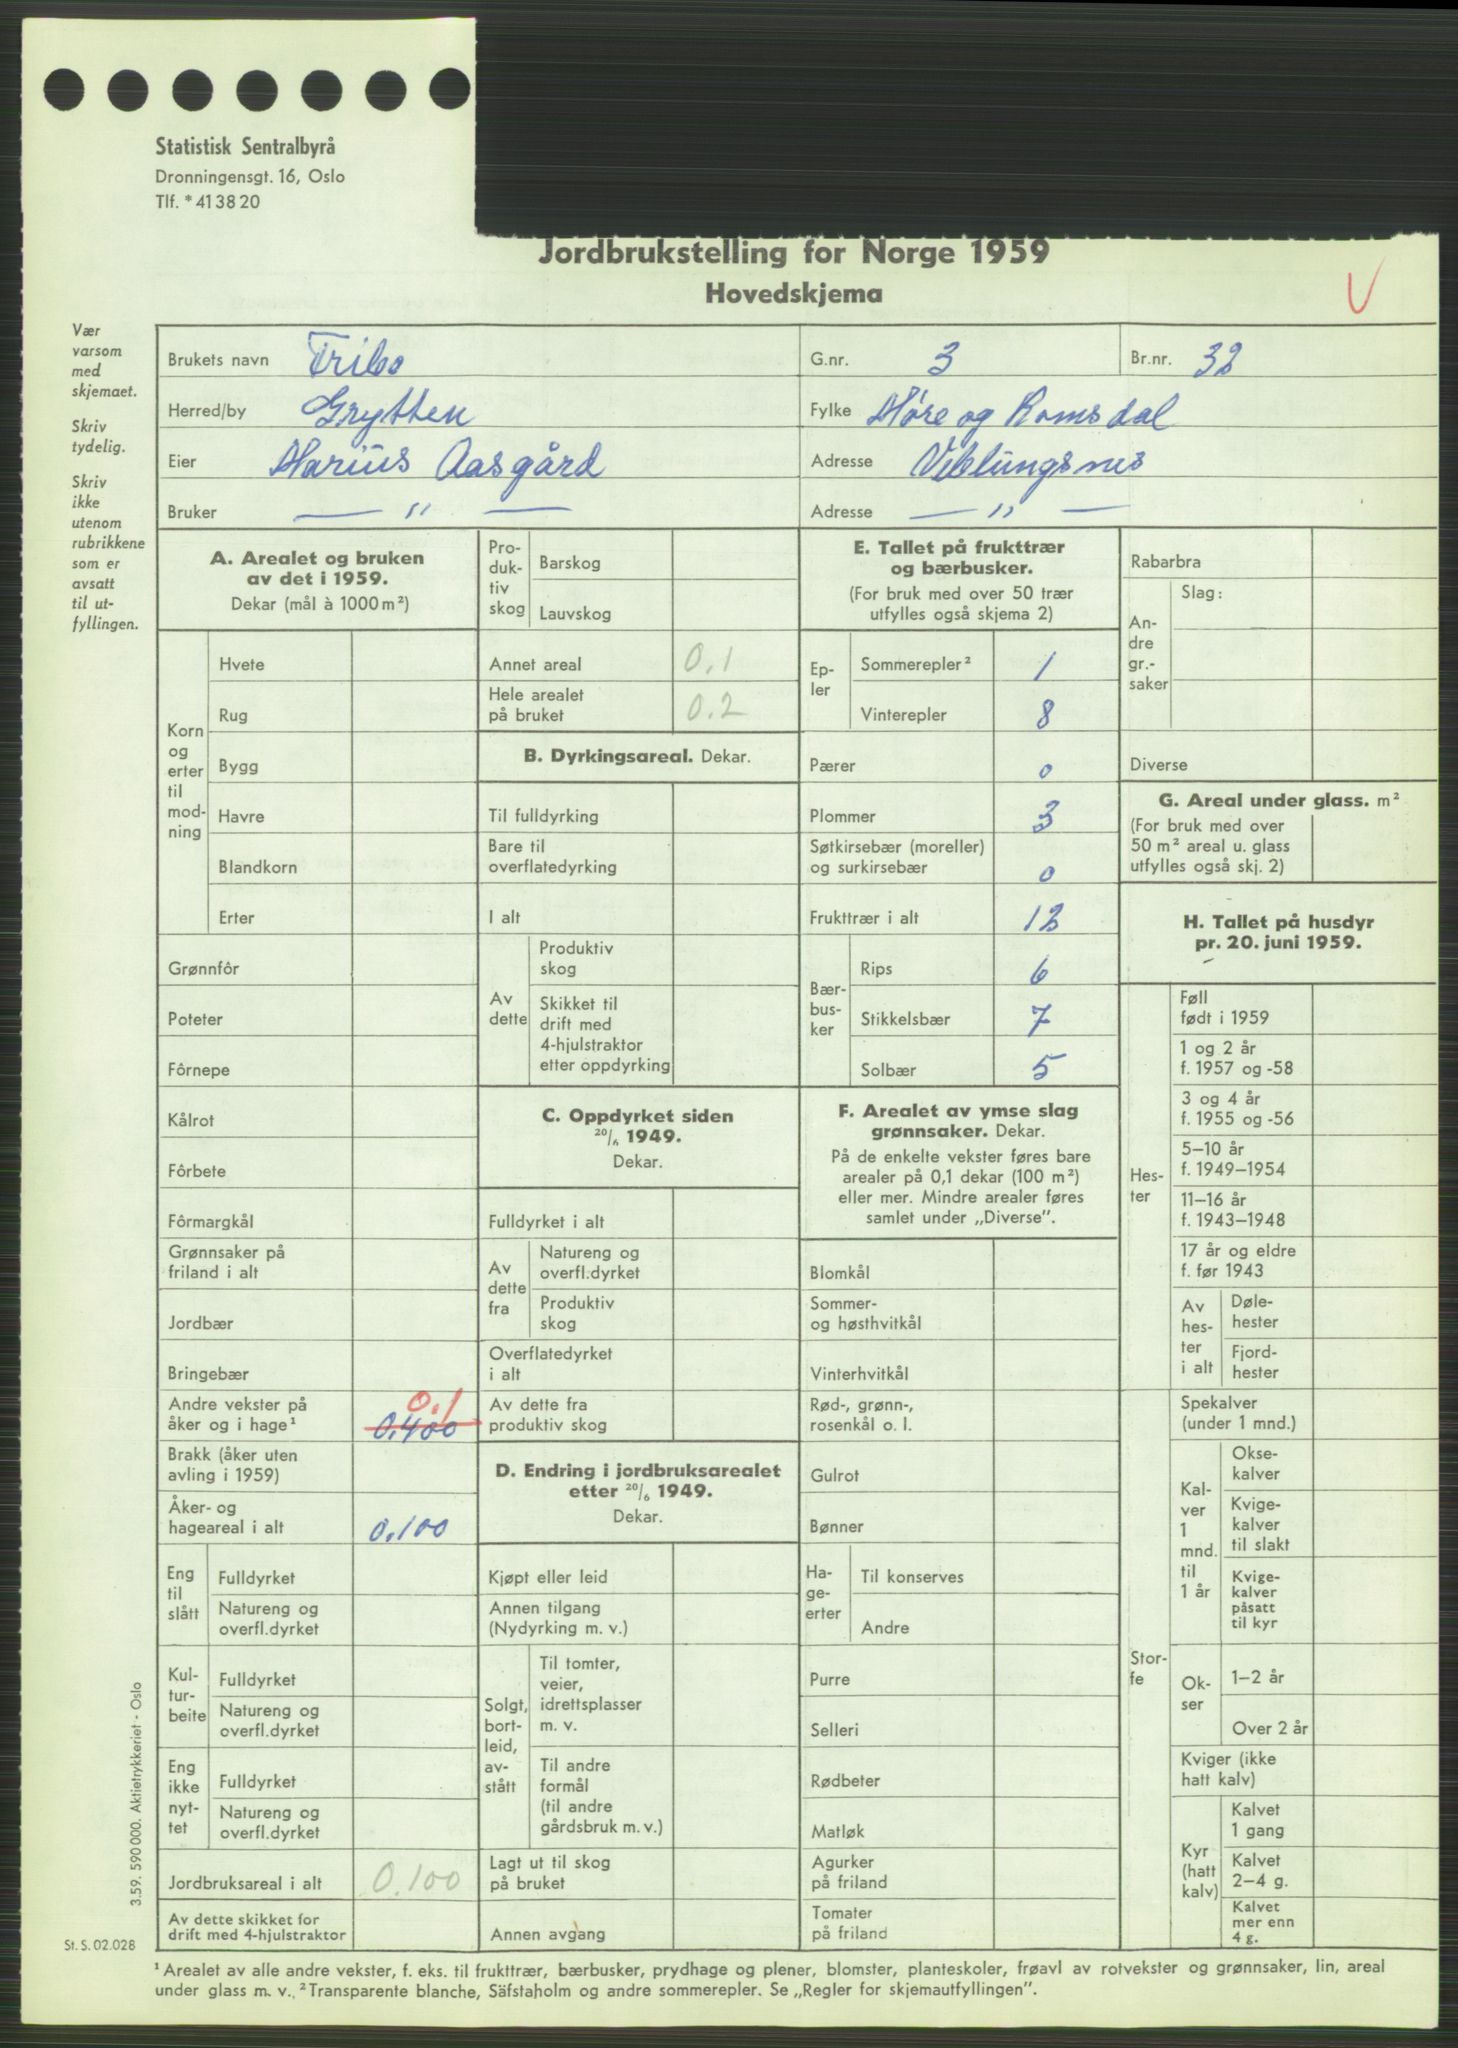 Statistisk Sentralbyrå
Dronningensgt. 16, Oslo
Tlf. * 41 38 20
Jordbrukstelling for Norge 1959
Hovedskjema
V
Vær
varsom
med
skjemaet.
Skriv
tydelig.
Skriv
ikke
utenom
rubrikkene
som er
avsatt
til ut-
fyllingen.
Brukets navn Tribo G.nr. 3 Br.nr. 32
Herred/by Grytten Fylke Møre og Romsdal
Eier Marius Aasgård Adresse Veblungsnes
Bruker — " — Adresse — " —
A. Arealet og bruken
av det i 1959.
Dekar (mål à 1000 m²)
Korn
og
erter
til
mod-
ning
Hvete
Rug
Bygg
Havre
Blandkorn
Erter
Grønnfôr
Poteter
Fôrnepe
Kålrot
Fôrbete
Fôrmargkål
Grønnsaker på
friland i alt
Jordbær
Bringebær
Andre vekster på 0.1
åker og i hage¹ 0.400
Brakk (åker uten
avling i 1959)
Åker- og
hageareal i alt 0.100
Eng
til
slått
Fulldyrket
Natureng og
overfl.dyrket
Kul-
tur-
beite
Fulldyrket
Natureng og
overfl.dyrket
Eng
ikke
nyt-
tet
Fulldyrket
Natureng og
overfl.dyrket
Jordbruksareal i alt 0.100
Av dette skikket for
drift med 4-hjulstraktor
Pro-
duk-
tiv
skog
Barskog
Lauvskog
Annet areal 0.1
Hele arealet
på bruket 0.2
B. Dyrkingsareal. Dekar.
Til fulldyrking
Bare til
overflatedyrking
I alt
Av
dette
Produktiv
skog
Skikket til
drift med
4-hjulstraktor
etter oppdyrking
C. Oppdyrket siden
20/6 1949.
Dekar.
Fulldyrket i alt
Av
dette
fra
Natureng og
overfl.dyrket
Produktiv
skog
Overflatedyrket
i alt
Av dette fra
produktiv skog
D. Endring i jordbruksarealet
etter 20/6 1949.
Dekar.
Kjøpt eller leid
Annen tilgang
(Nydyrking m. v.)
Solgt,
bort-
leid,
av-
stått
Til tomter,
veier,
idrettsplasser
m. v.
Til andre
formål
(til andre
gårdsbruk m. v.)
Lagt ut til skog
på bruket
Annen avgang
E. Tallet på frukttrær
og bærbusker.
(For bruk med over 50 trær
utfylles også skjema 2)
Ep-
ler
Sommerepler² 1
Vinterepler 8
Pærer 0
Plommer 3
Søtkirsebær (moreller)
og surkirsebær 0
Frukttrær i alt 12
Bær-
bus-
ker
Rips 6
Stikkelsbær 7
Solbær 5
F. Arealet av ymse slag
grønnsaker. Dekar.
På de enkelte vekster føres bare
arealer på 0,1 dekar (100 m²)
eller mer. Mindre arealer føres
samlet under „Diverse".
Blomkål
Sommer-
og høsthvitkål
Vinterhvitkål
Rød-, grønn-,
rosenkål o. l.
Gulrot
Bønner
Ha-
ge-
erter
Til konserves
Andre
Purre
Selleri
Rødbeter
Matløk
Agurker
på friland
Tomater
på friland
Rabarbra
An-
dre
gr.-
saker
Slag:
Diverse
G. Areal under glass. m²
(For bruk med over
50 m² areal u. glass
utfylles også skj. 2)
H. Tallet på husdyr
pr. 20. juni 1959.
Hes-
ter
Føll
født i 1959
1 og 2 år
f. 1957 og -58
3 og 4 år
f. 1955 og -56
5–10 år
f. 1949–1954
11–16 år
f. 1943–1948
17 år og eldre
f. før 1943
Av
hes-
ter
i alt
Døle-
hester
Fjord-
hester
Stor-
fe
Spekalver
(under 1 mnd.)
Kal-
ver
1
mnd.
til
1 år
Okse-
kalver
Kvige-
kalver
til slakt
Kvige-
kalver
påsatt
til kyr
Ok-
ser
1–2 år
Over 2 år
Kviger (ikke
hatt kalv)
Kyr
(hatt
kalv)
Kalvet
1 gang
Kalvet
2–4 g.
Kalvet
mer enn
4 g.
3.59. 590 000. Aktietrykkeriet - Oslo
St. S. 02.028
¹ Arealet av alle andre vekster, f. eks. til frukttrær, bærbusker, prydhage og plener, blomster, planteskoler, frøavl av rotvekster og grønnsaker, lin, areal
under glass m. v., ² Transparente blanche, Säfstaholm og andre sommerepler. Se „Regler for skjemautfyllingen".